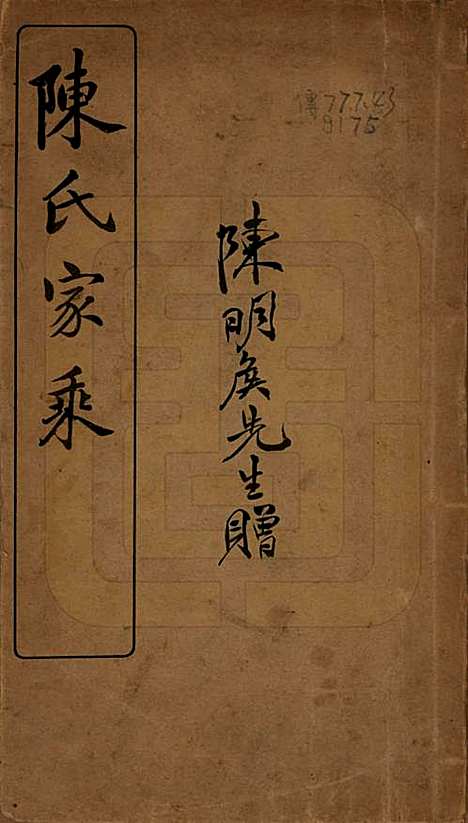 傳777.43
8175
陳明矦先生贈
陳氏家乘